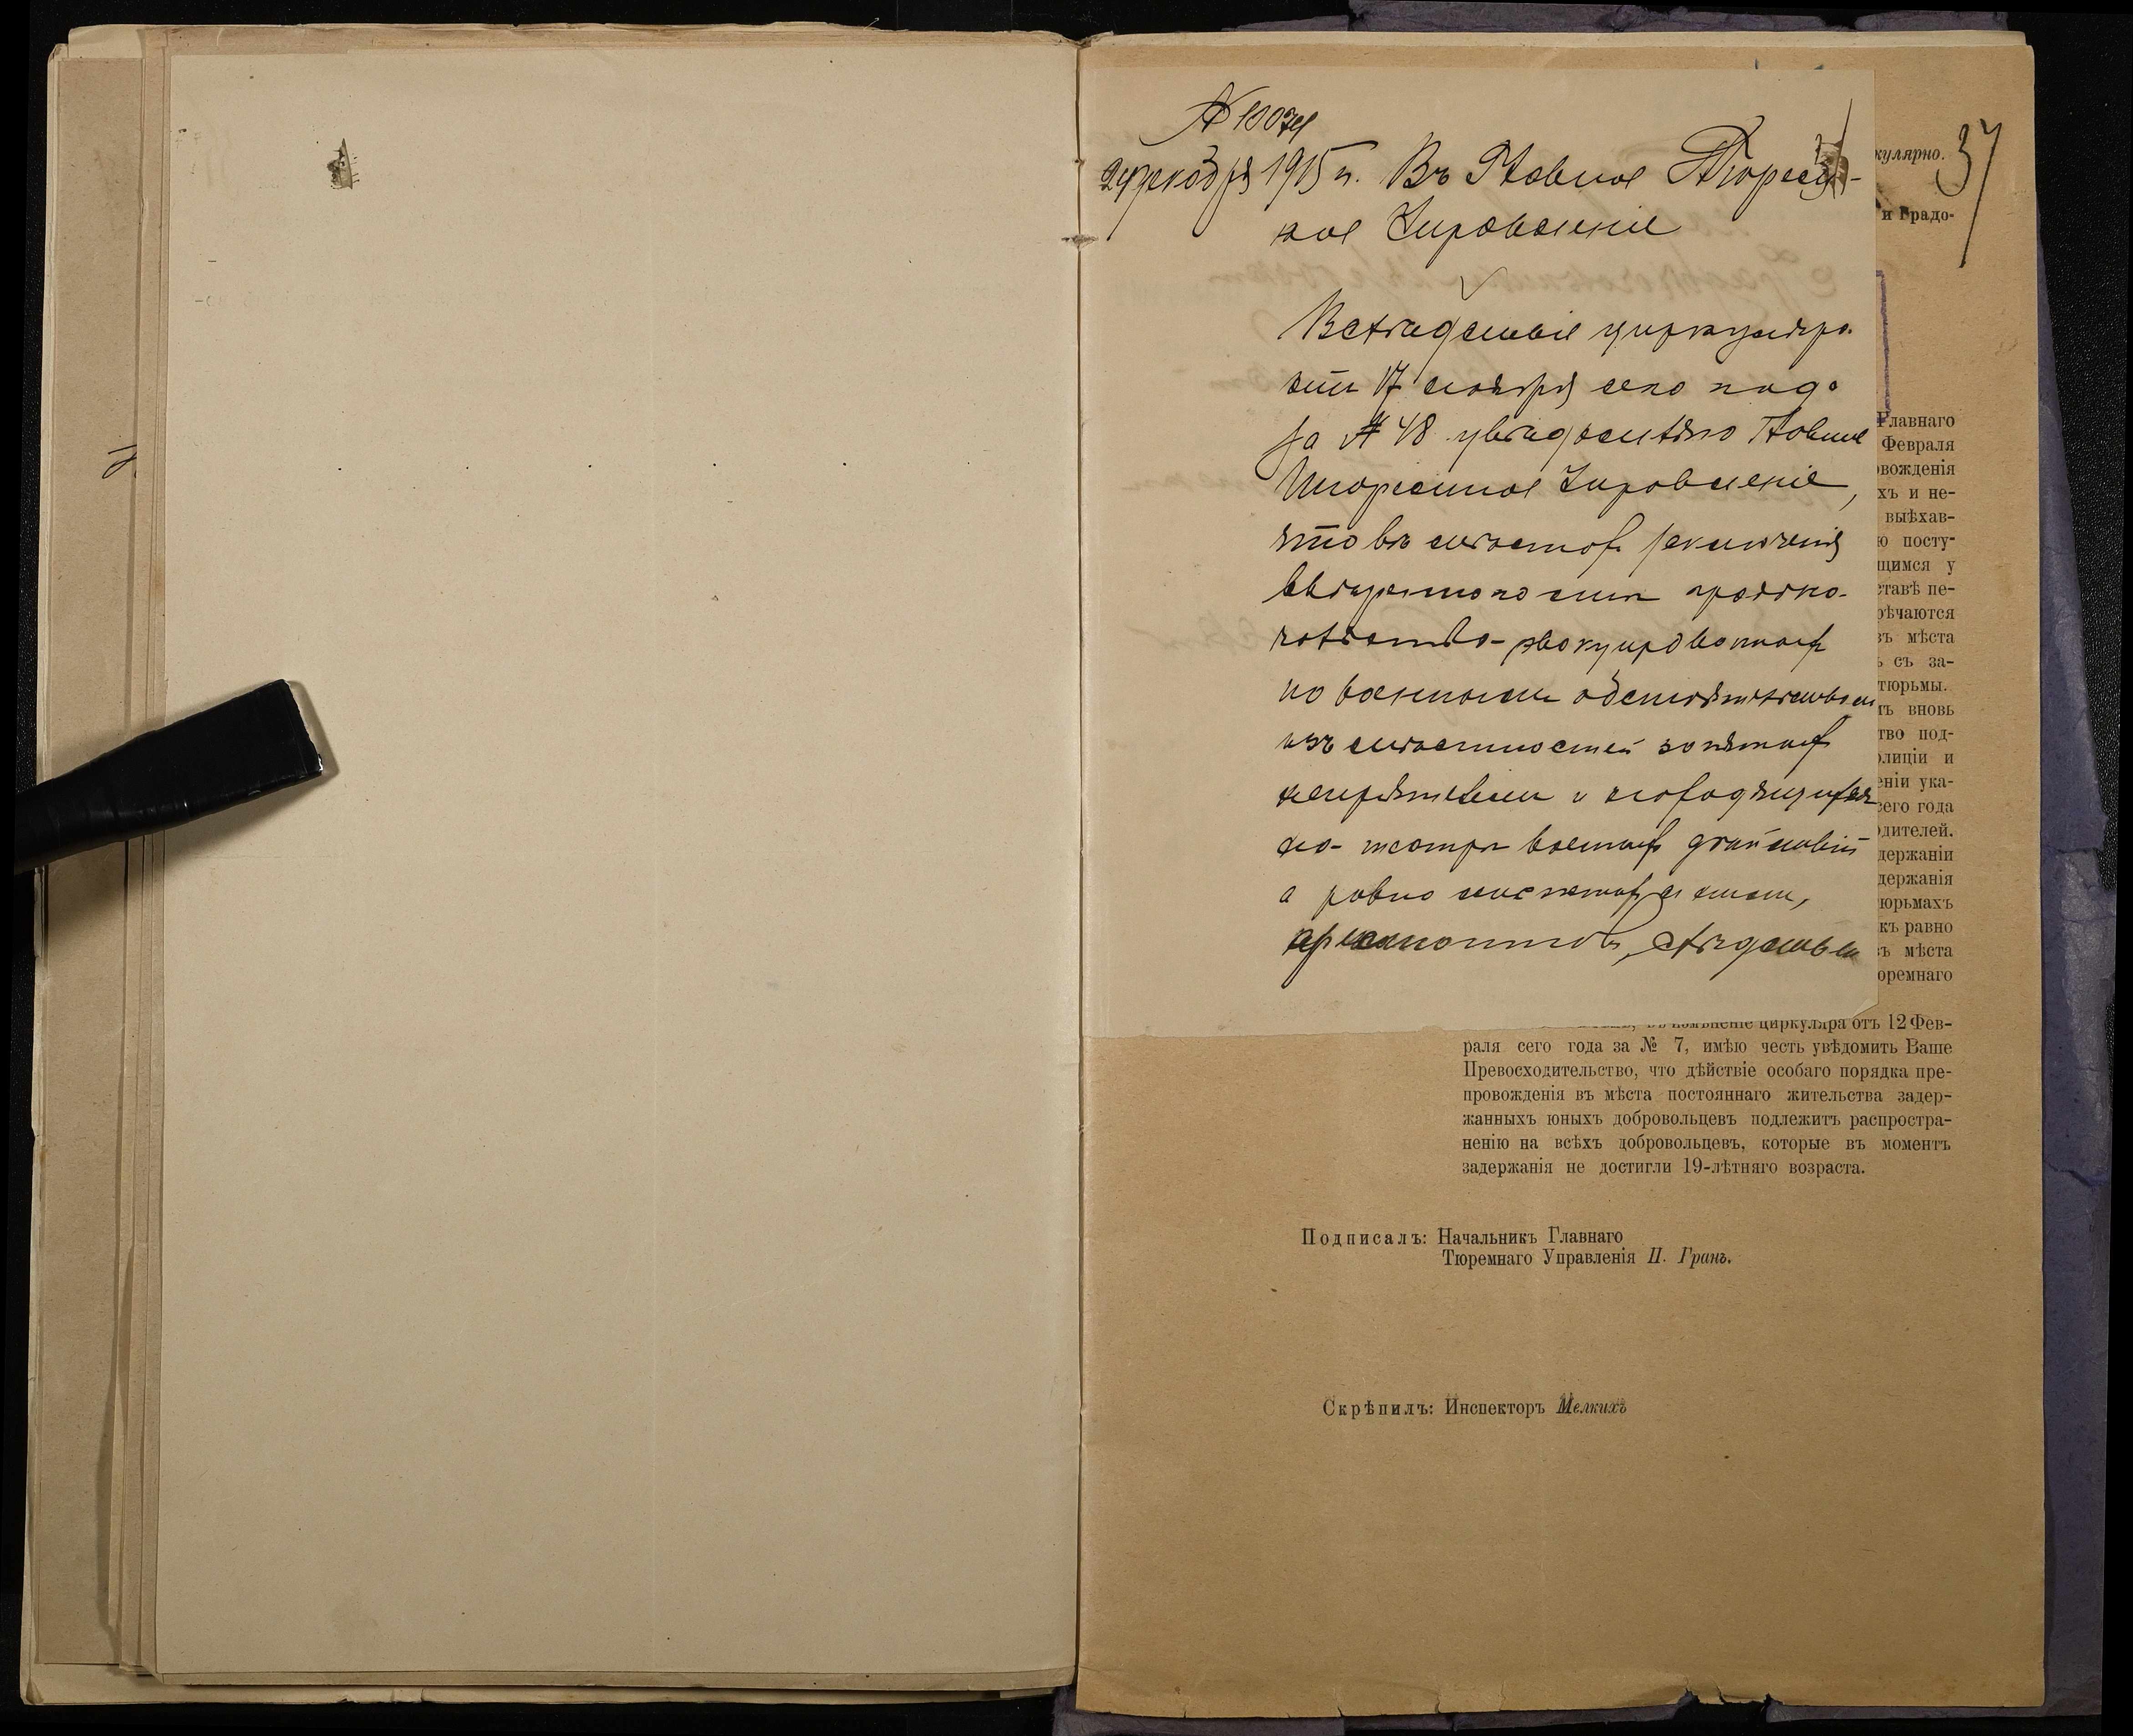 29 декабря 1915 г. Въ Главное Тюрем-
ное Управленіе
Вслѣдствіе циркуляра
отъ 17 ноября сего года
за № 48 увѣдомляю Главное
Тюремное Управленіе,
что въ мѣстахъ заключенія
ввѣреннаго мнѣ градона-
чальства эвакуированныхъ
по военнымъ обстоятельствамъ
изъ мѣстностей занятыхъ
непріятелемъ и находящихся
на театрѣ военныхъ дѣйствій
а равно
арестантовъ, слѣдственн
37
кулярно.
и Градо-
Главнаго
Февраля
овожденія
хъ и не-
выѣхав-
ю посту-
щимся у
ставѣ пе-
рѣчаются
въ мѣста
ь съ за-
тюрьмы.
мъ вновь
тво под-
олиціи и
еніи ука-
сего года
одителей.
держаніи
держанія
юрьмахъ
къ равно
въ мѣста
юремнаго
измѣненіе циркуляра отъ 12 Фев-
раля сего года за № 7, имѣю честь увѣдомить Ваше
Превосходительство, что дѣйствіе особаго порядка пре-
провожденія въ мѣста постояннаго жительства задер-
жанныхъ юныхъ добровольцевъ подлежитъ распростра-
ненію на всѣхъ добровольцевъ, которые въ моментъ
задержанія не достигли 19-лѣтняго возраста.
Подписалъ: Начальникъ Главнаго
Тюремнаго Управленія П. Гранъ.
Скрѣпилъ: Инспекторъ Мелкихъ